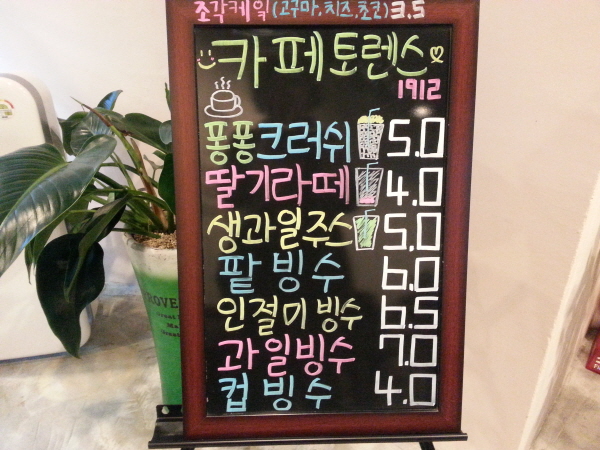 조각케잌(고구마,치즈,초코)3.5
카페토렌스
1912
퐁퐁크러쉬 5.0
딸기라떼 4.0
생과일주스 5.0
팥빙수 6.0
인절미빙수 6.5
과일빙수 7.0
컵빙수 4.0